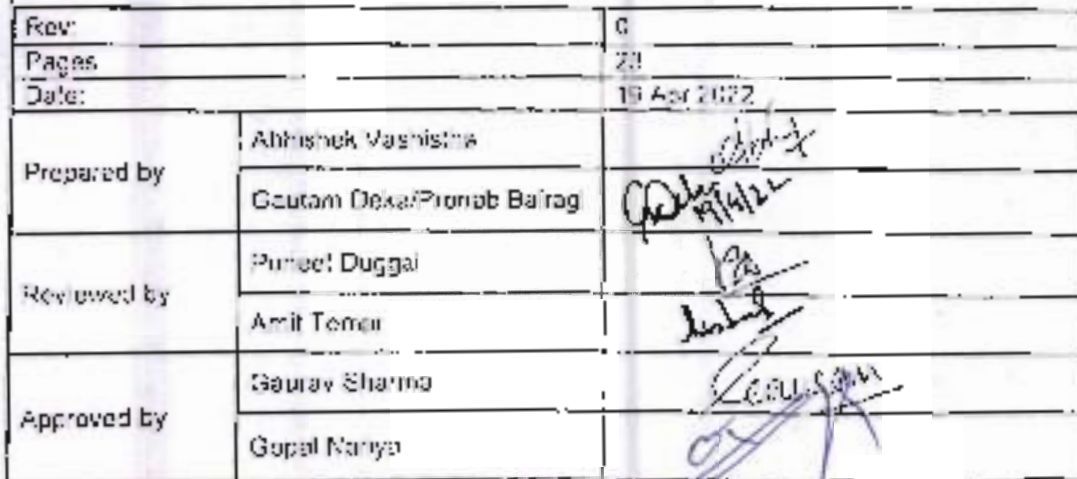 Rev: 0
Pages 23
Date: 19 Apr 2022
Prepared by
Abhishek Vashistha
Gautam Deka/Pronab Bairagi
19/4/22
Reviewed by
Puneet Duggal
Amit Tomar
Approved by
Gaurav Sharma
Gopal Nariya